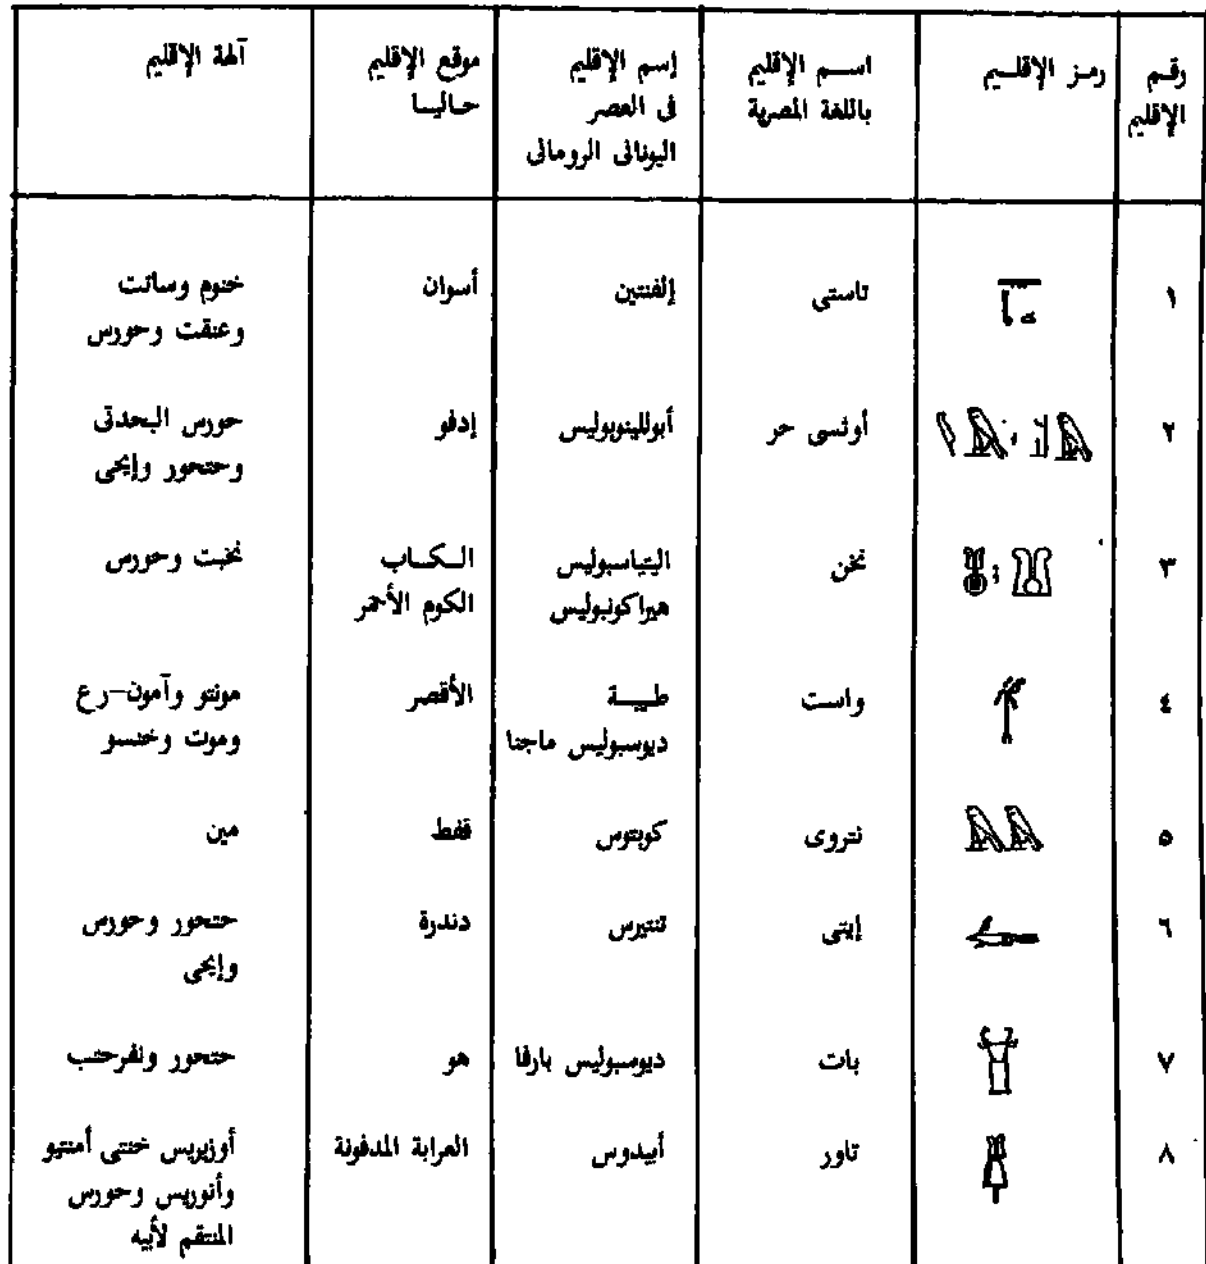 رقم الإقليم | رمز الإقليم | اسم الإقليم باللغة المصرية | إسم الإقليم فى العصر اليونانى الرومانى | موقع الإقليم حاليا | آلهة الإقليم
١ | تاستى | إلفنتين | أسوان | خنوم وساتت وعنقت وحورس
٢ | أوتسى حر | أبوللينوبوليس | إدفو | حورس البحدتى وحتحور وإيحى
٣ | نخن | اليتياسبوليس هيراكونبوليس | الكاب الكوم الأحمر | نخبت وحورس
٤ | واست | طيبة ديوسبوليس ماجنا | الأقصر | مونتو وآمون-رع وموت وخنسو
٥ | نتروى | كوبتوس | قفط | مين
٦ | إيتى | تنتيرس | دندرة | حتحور وحورس وإيحى
٧ | بات | ديوسبوليس بارفا | هو | حتحور ونفرحتب
٨ | تاور | أبيدوس | العرابة المدفونة | أوزيريس ختتى أمنتيو وأنوريس وحورس المنتقم لأبيه